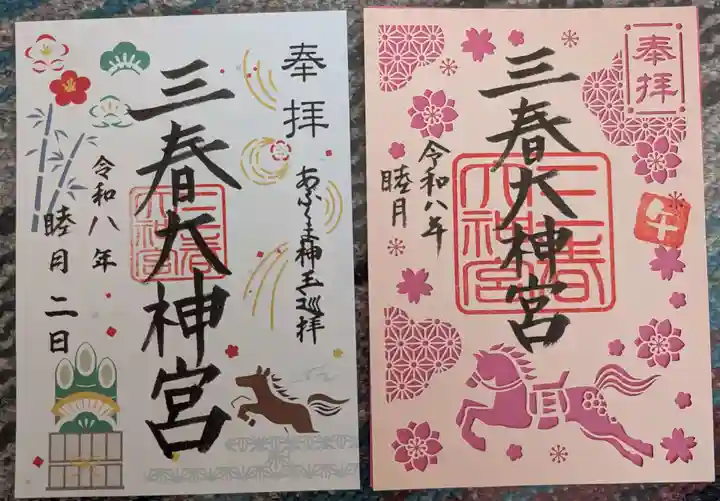 奉拝
三春大神宮
三春大神宮
あぶくま神玉巡拝
令和八年
睦月二日
奉拝
三春大神宮
三春大神宮
午
令和八年
睦月